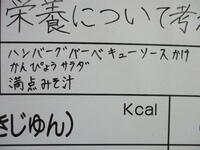 栄養について考
ハンバーグバーベキューソースかけ
かんぴょうサラダ
満点みそ汁
Kcal
きじゅん)